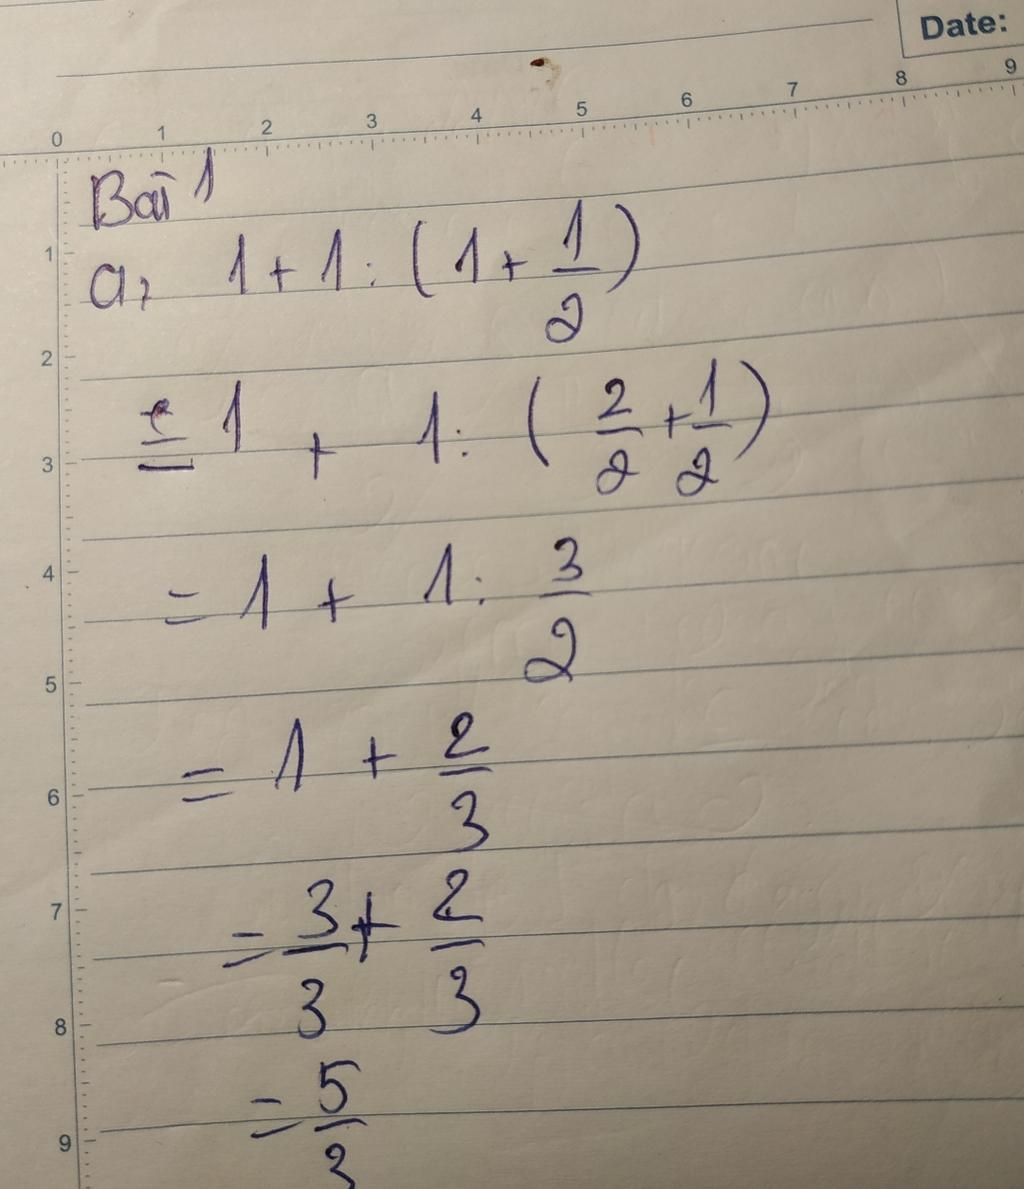 Date:
0 1 2 3 4 5 6 7 8 9
1
2
3
4
5
6
7
8
9
Bài 1
a, 1 + 1 : ( 1 + 1/2 )
= 1 + 1 : ( 2/2 + 1/2 )
= 1 + 1 : 3/2
= 1 + 2/3
= 3/3 + 2/3
= 5/3